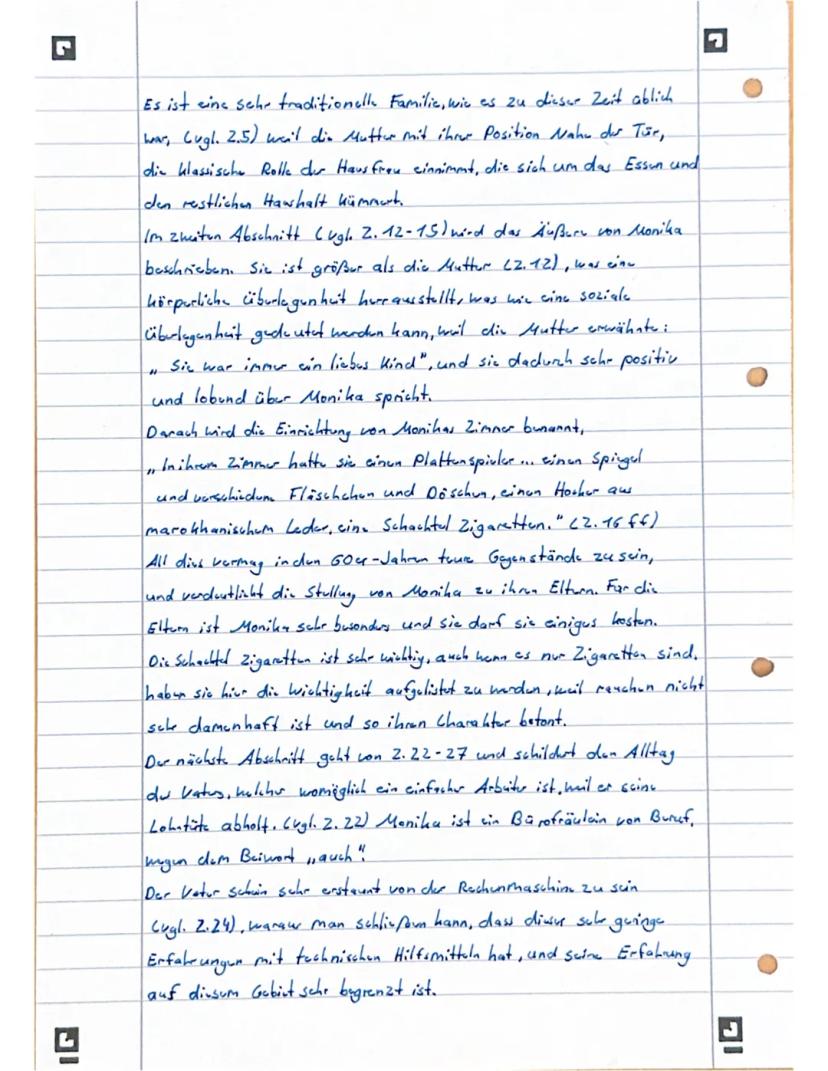 Es ist eine sehr traditionelle Familie, wie es zu dieser Zeit ablich
war, (vgl. Z.5) weil die Mutter mit ihrer Position Nahe der Tür,
die klassische Rolle der Hausfrau einnimmt, die sich um das Essen und
den restlichen Haushalt kümmert.
Im zweiten Abschnitt (vgl. Z. 12-15) wird das Äußere von Monika
beschrieben. Sie ist größer als die Mutter (Z.12), was eine
körperliche Überlegenheit herrausstellt, was wie eine soziale
Überlegenheit gedeutet werden kann, weil die Mutter erwähnte:
„Sie war immer ein liebes Kind", und sie dadurch sehr positiv
und lobend über Monika spricht.
Danach wird die Einrichtung von Monikas Zimmer benannt,
„In ihrem Zimmer hatte sie einen Plattenspieler ... einen Spiegel
und verschiedene Fläschchen und Döschen, einen Hocker aus
marokkanischem Leder, eine Schachtel Zigaretten." (Z. 16 ff)
All dies vermag in den 60er-Jahren teure Gegenstände zu sein,
und verdeutlicht die Stellung von Monika zu ihren Eltern. Für die
Eltern ist Monika sehr besonders und sie darf sie einiges kosten.
Die Schachtel Zigaretten ist sehr wichtig, auch wenn es nur Zigaretten sind,
haben sie hier die Wichtigkeit aufgelistet zu werden, weil rauchen nicht
sehr damenhaft ist und so ihren Charakter betont.
Der nächste Abschnitt geht von Z. 22-27 und schildert den Alltag
des Vaters, welcher womöglich ein einfacher Arbeiter ist, weil er seine
Lohntüte abholt. (vgl. Z. 22) Monika ist ein Bürofräulein von Beruf,
wegen dem Beiwort „auch".
Der Vater schein sehr erstaunt von der Rechenmaschine zu sein
(vgl. Z.24), woraus man schließen kann, dass dieser sehr geringe
Erfahrungen mit technischen Hilfsmitteln hat, und seine Erfahrung
auf diesem Gebiet sehr begrenzt ist.